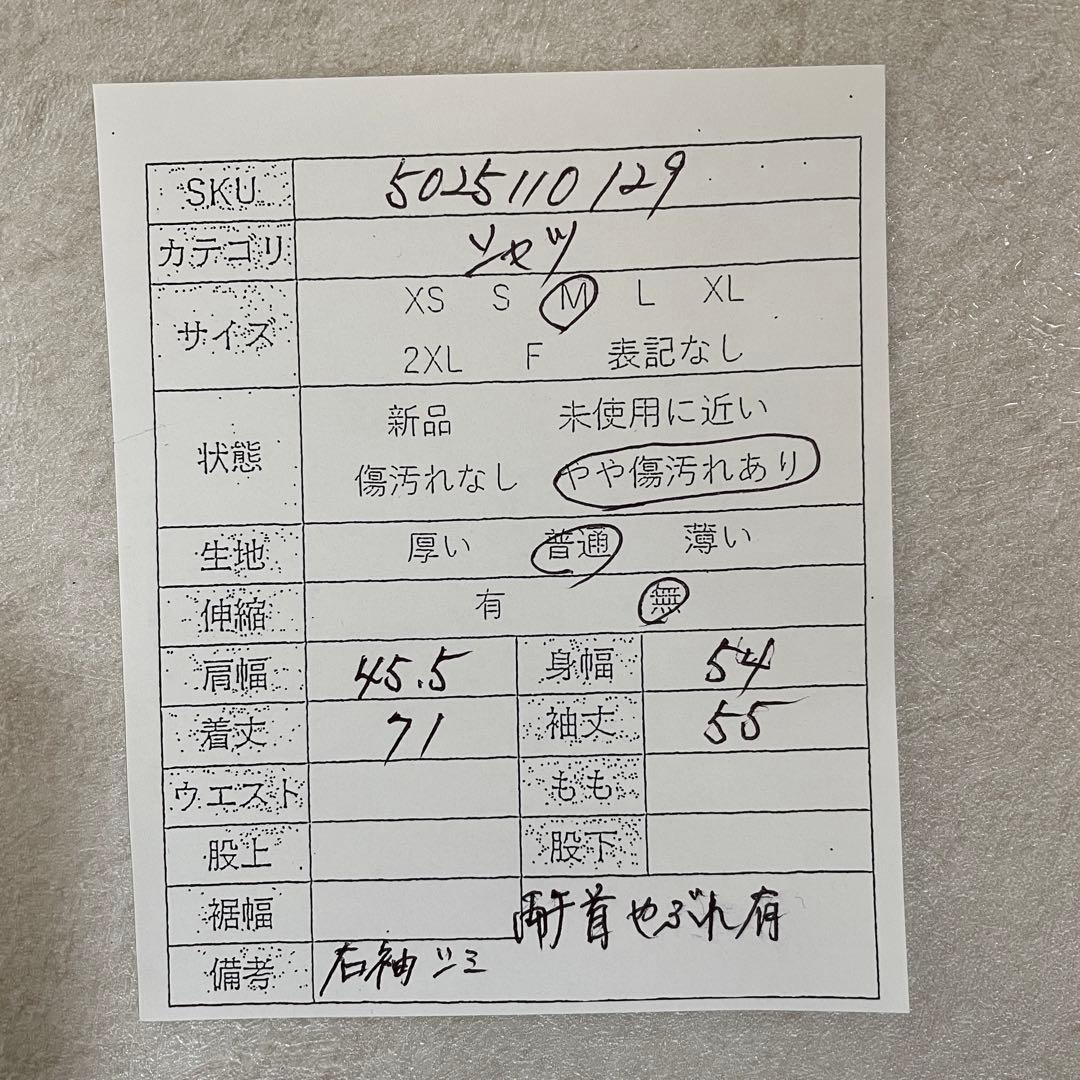 SKU 5025110129
カテゴリ シャツ
サイズ XS S M L XL
2XL F 表記なし
状態 新品 未使用に近い
傷汚れなし やや傷汚れあり
生地 厚い 普通 薄い
伸縮 有 無
肩幅 45.5 身幅 54
着丈 71 袖丈 55
ウエスト もも
股上 股下
裾幅
両手首やぶれ有
備考 右袖シミ